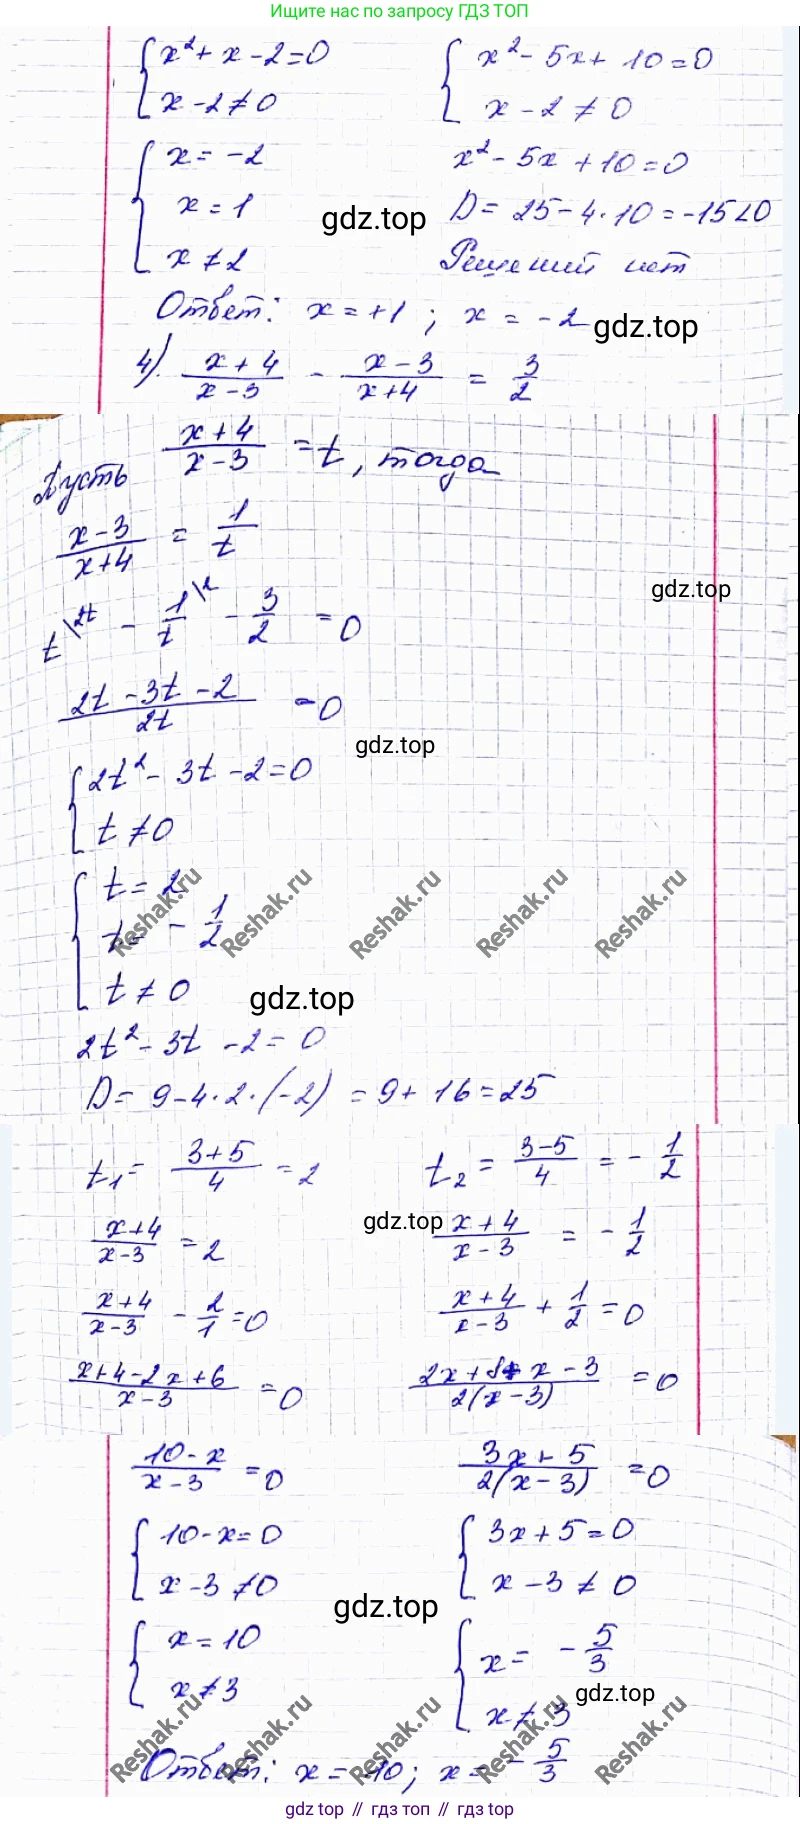 Ищите нас по запросу ГДЗ ТОП
{ x² + x - 2 = 0
x - 2 ≠ 0
{ x² - 5x + 10 = 0
x - 2 ≠ 0
{ x = -2
x = 1
x ≠ 2
x² - 5x + 10 = 0
D = 25 - 4·10 = -15 < 0
Решений нет
gdz.top
Ответ: x = +1 ; x = -2
gdz.top
4). (x + 4)/(x - 3) - (x - 3)/(x + 4) = 3/2
Пусть (x + 4)/(x - 3) = t, тогда
(x - 3)/(x + 4) = 1/t
gdz.top
t\2t - 1/t\2 - 3/2 = 0
(2t - 3t - 2)/2t = 0
gdz.top
{ 2t² - 3t - 2 = 0
t ≠ 0
{ t = 2
t = - 1/2
t ≠ 0
Reshak.ru Reshak.ru Reshak.ru Reshak.ru Reshak.ru
gdz.top
2t² - 3t - 2 = 0
D = 9 - 4·2·(-2) = 9 + 16 = 25
t₁ = (3 + 5)/4 = 2
t₂ = (3 - 5)/4 = - 1/2
(x + 4)/(x - 3) = 2
gdz.top
(x + 4)/(x - 3) = - 1/2
(x + 4)/(x - 3) - 2/1 = 0
(x + 4)/(x - 3) + 1/2 = 0
(x + 4 - 2x + 6)/(x - 3) = 0
(2x + 8 + x - 3)/2(x - 3) = 0
(10 - x)/(x - 3) = 0
(3x + 5)/2(x - 3) = 0
{ 10 - x = 0
x - 3 ≠ 0
{ 3x + 5 = 0
x - 3 ≠ 0
gdz.top
{ x = 10
x ≠ 3
{ x = - 5/3
x ≠ 3
gdz.top
Reshak.ru Reshak.ru Reshak.ru Reshak.ru Reshak.ru
Ответ: x = 10; x = - 5/3
gdz top // гдз топ // gdz top